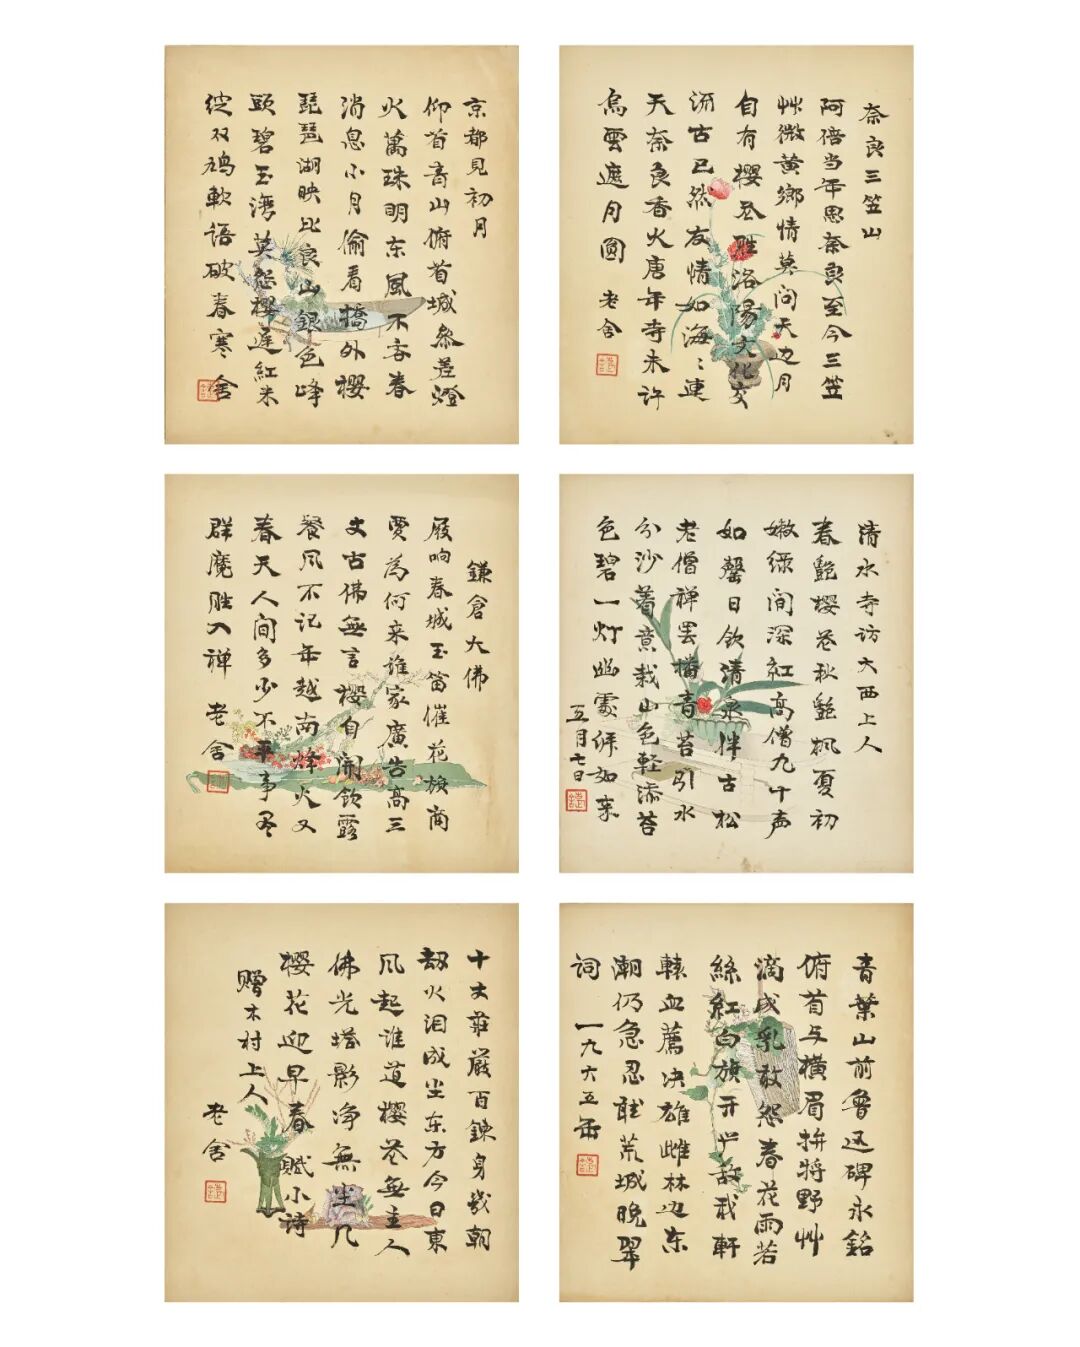 奈良三笠山
阿倍当年思奈良至今三笠
艸微黄鄉情莫问天边月
自有樱花胜洛陽文化交
流古已然友情如海〻連
天奈良香火唐年寺未许
烏雲遮月圓 老舍
京都見初月
仰首青山俯首城參差燈
火萬珠明东風不吝春
消息小月偷看橋外樱
琵琶湖映比良山銀色峰
頭碧玉湾莫怨樱遲紅未
绽双鳩軟語破春寒 舍
清水寺访大西上人
春艷樱花秋艷枫夏初
嫩绿间深紅高僧九十声
如罄日飲清泉伴古松
老僧禅罢掃青苔引水
分沙着意栽山色輕添苔
色碧一灯幽處供如来
五月七日
鎌倉大佛
屐响春城玉笛催花旗商
賈為何来誰家廣告高三
丈古佛無言樱自開飲露
餐风不记年越南烽火又
春天人间多少不平事尽
群魔胜入禅 老舍
青葉山前魯迅碑永銘
俯首与横眉拚将野艸
滴成乳敢怨春花雨若
絲紅白旗开敵我軒
轅血薦决雄雌林边东
潮仍急忍聴荒城晚翠
詞 一九六五年
十丈莊嚴百鍊身幾朝
劫火泪成尘东方今日東
风起谁道樱花無主人
佛光塔影净無尘几
樱花迎早春賦小詩
赠木村上人
老舍